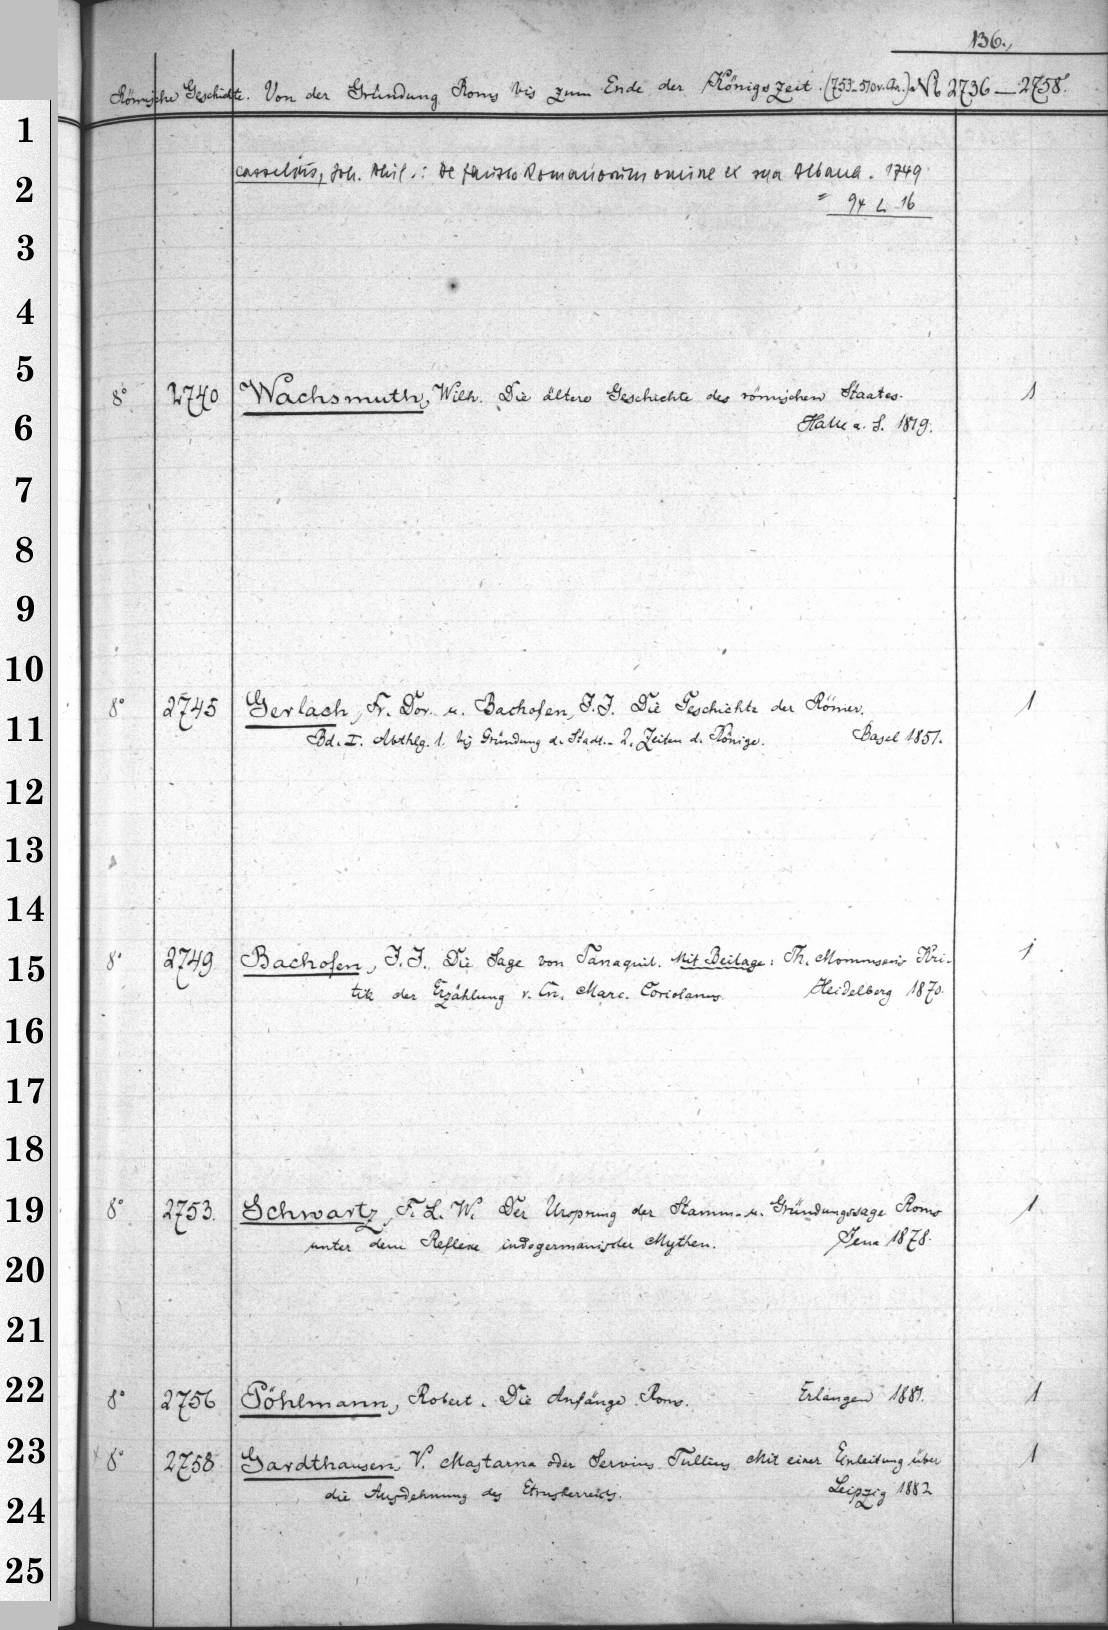 136.
Römische Geschichte. Von der Gründung Roms bis zum Ende der Königszeit. (753-510 v. Chr.) No 2736-2758.
1
Casselius, Joh. Phil.: De fausto Romanorum omine ex rua Albana. 1749
2
= 94 L 16
3
4
5
8° 2740 Wachsmuth, Wilh. Die ältere Geschichte des römischen Staates. 1
6
Halle a. S. 1819.
7
8
9
10
8° 2745 Gerlach, Fr. Dor. u. Bachofen, J. J. Die Geschichte der Römer. 1
11
Bd. I. Abthlg. 1. bis Gründung d. Stadt. - 2. Zeiten d. Könige. Basel 1851.
12
13
14
8° 2749 Bachofen, J. J. Die Sage von Tanaquil. Mit Beilage: Th. Mommsen's Kri- 1
15
tik der Erzählung v. Cn. Marc. Coriolanus. Heidelberg 1870.
16
17
18
19
8° 2753. Schwartz, F. L. W. Der Ursprung der Stamm- u. Gründungssage Roms 1
unter dem Reflexe indogermanischer Mythen. Jena 1878.
20
21
22
8° 2756 Pöhlmann, Robert. Die Anfänge Roms. Erlangen 1881. 1
23
8° 2758 Gardthausen, V. Mastarna oder Servius Tullius Mit einer Einleitung über 1
die Ausdehnung des Etruskerreichs. Leipzig 1882
24
25